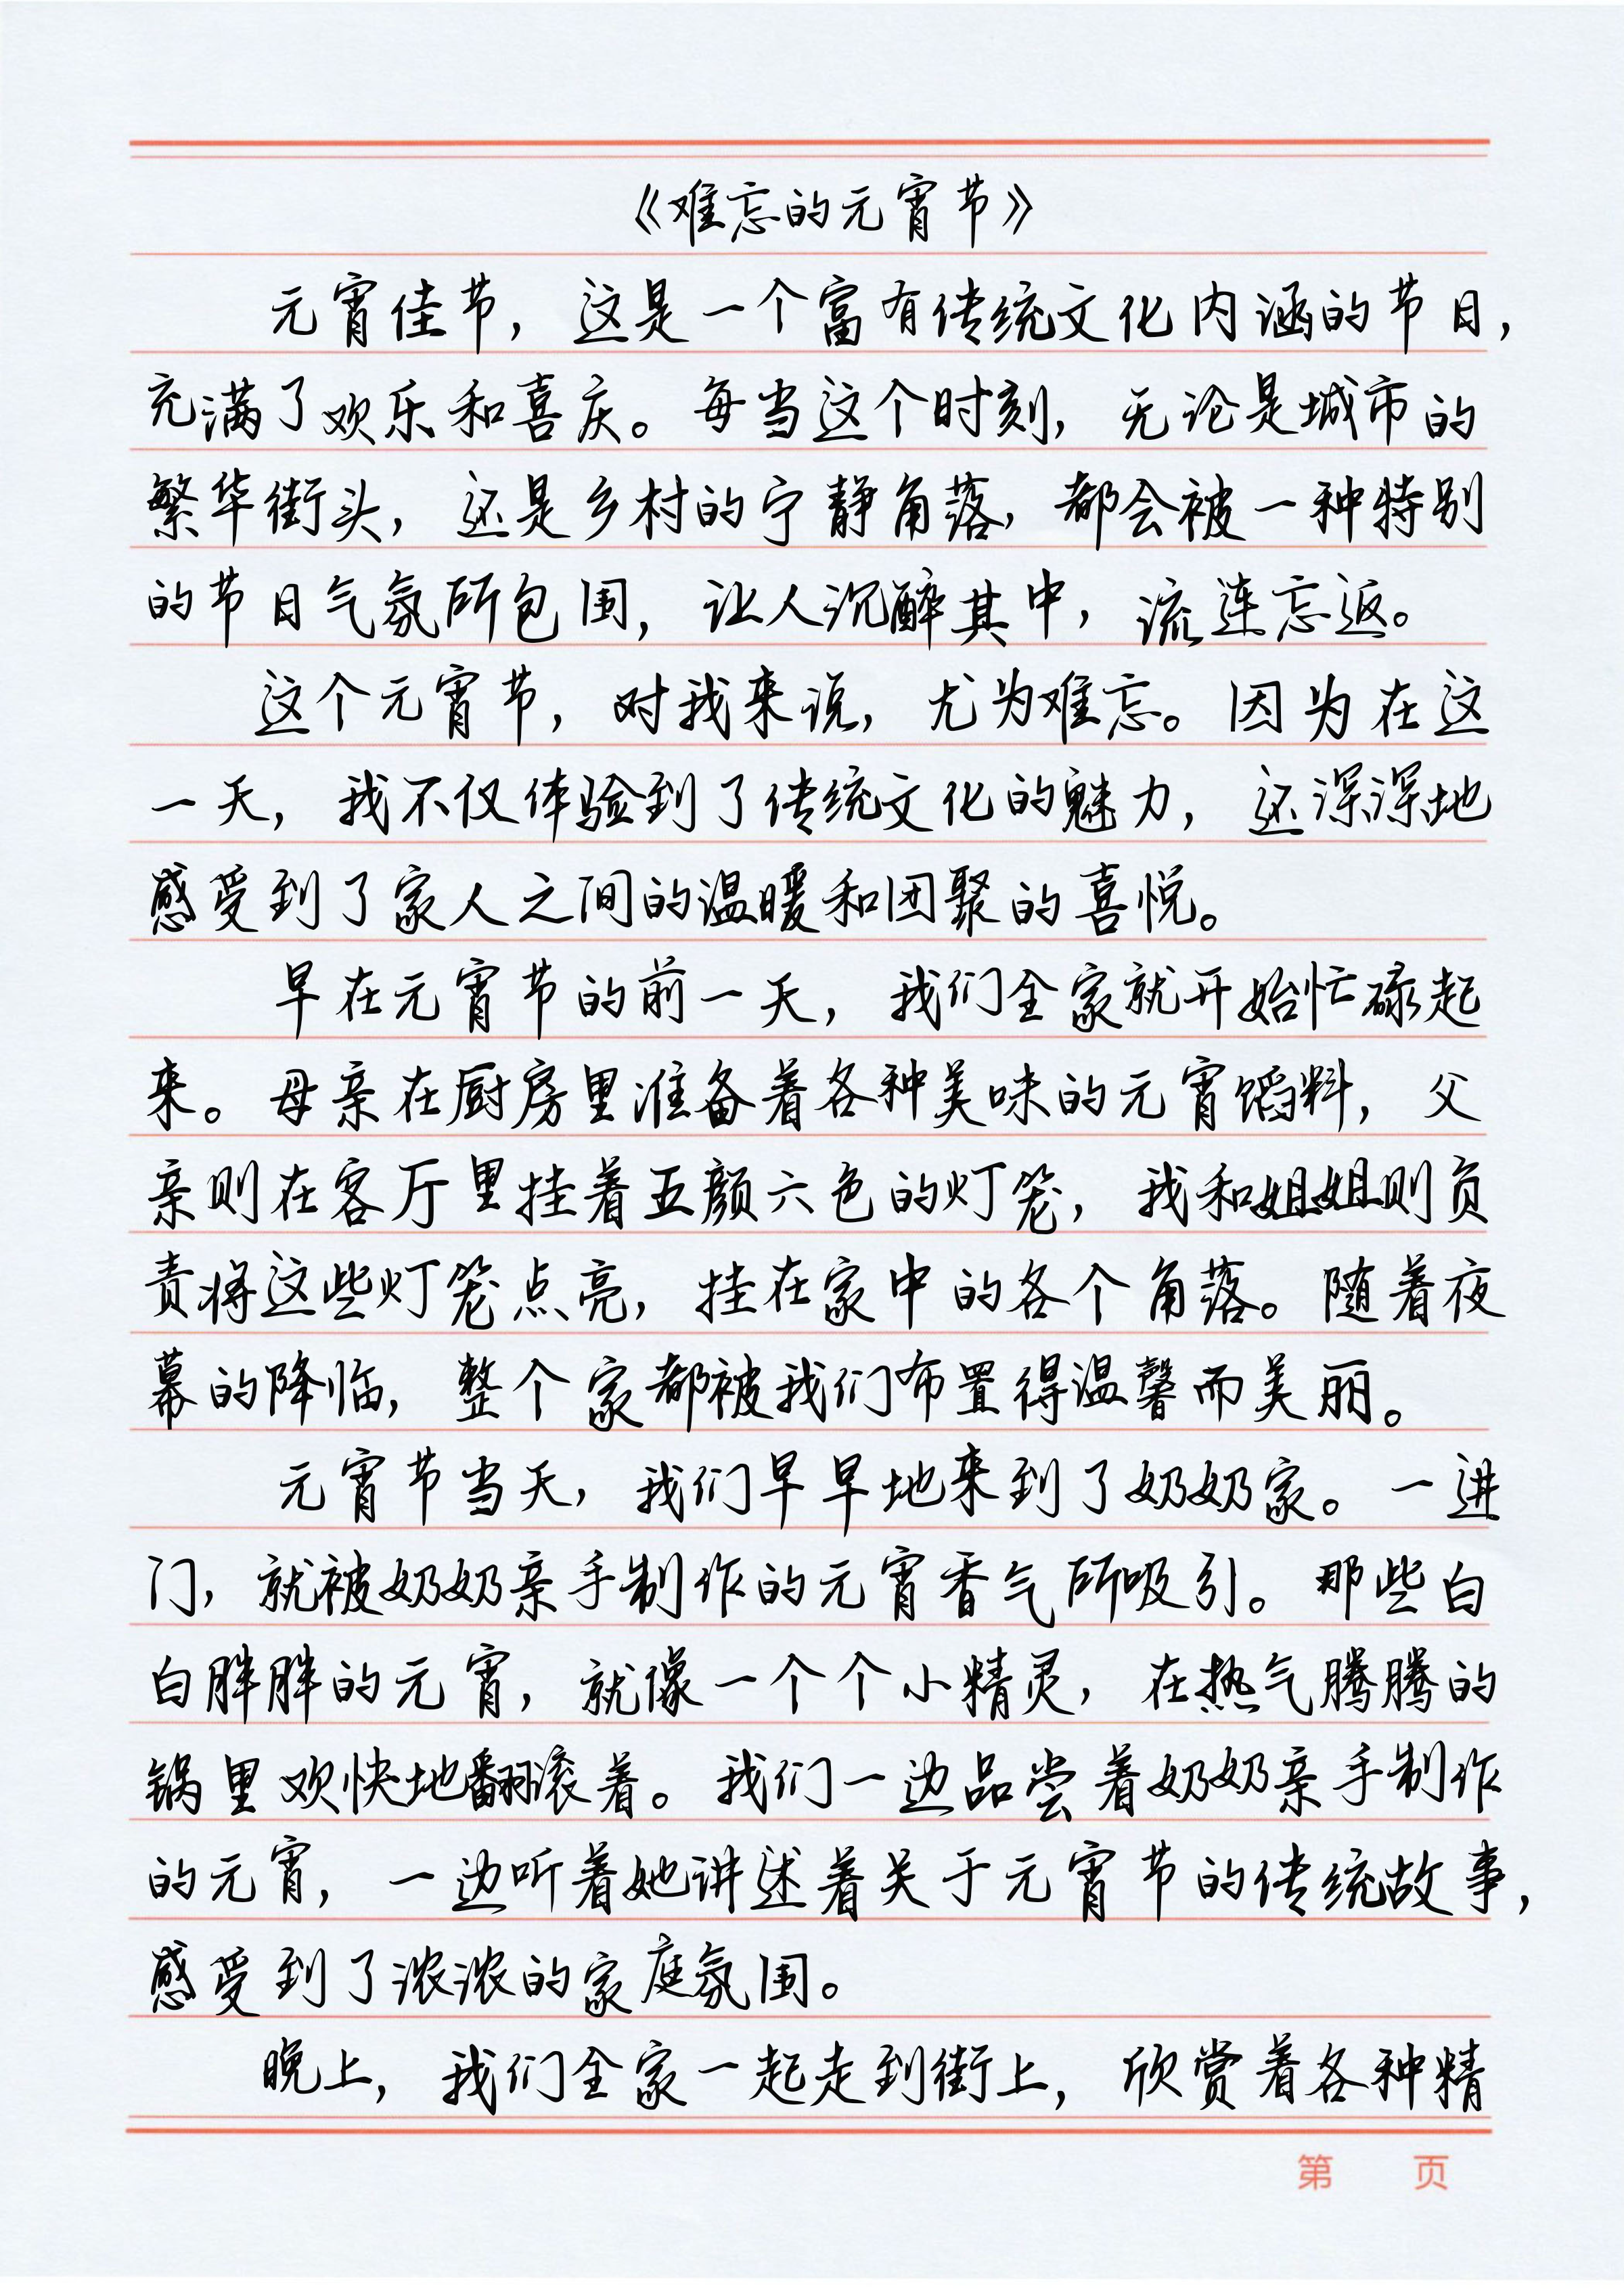 《难忘的元宵节》
元宵佳节，这是一个富有传统文化内涵的节日，
充满了欢乐和喜庆。每当这个时刻，无论是城市的
繁华街头，还是乡村的宁静角落，都会被一种特别
的节日气氛所包围，让人沉醉其中，流连忘返。
这个元宵节，对我来说，尤为难忘。因为在这
一天，我不仅体验到了传统文化的魅力，还深深地
感受到了家人之间的温暖和团聚的喜悦。
早在元宵节的前一天，我们全家就开始忙碌起
来。母亲在厨房里准备着各种美味的元宵馅料，父
亲则在客厅里挂着五颜六色的灯笼，我和姐姐则负
责将这些灯笼点亮，挂在家中的各个角落。随着夜
幕的降临，整个家都被我们布置得温馨而美丽。
元宵节当天，我们早早地来到了奶奶家。一进
门，就被奶奶亲手制作的元宵香气所吸引。那些白
白胖胖的元宵，就像一个个小精灵，在热气腾腾的
锅里欢快地翻滚着。我们一边品尝着奶奶亲手制作
的元宵，一边听着她讲述着关于元宵节的传统故事，
感受到了浓浓的家庭氛围。
晚上，我们全家一起走到街上，欣赏着各种精
第 页